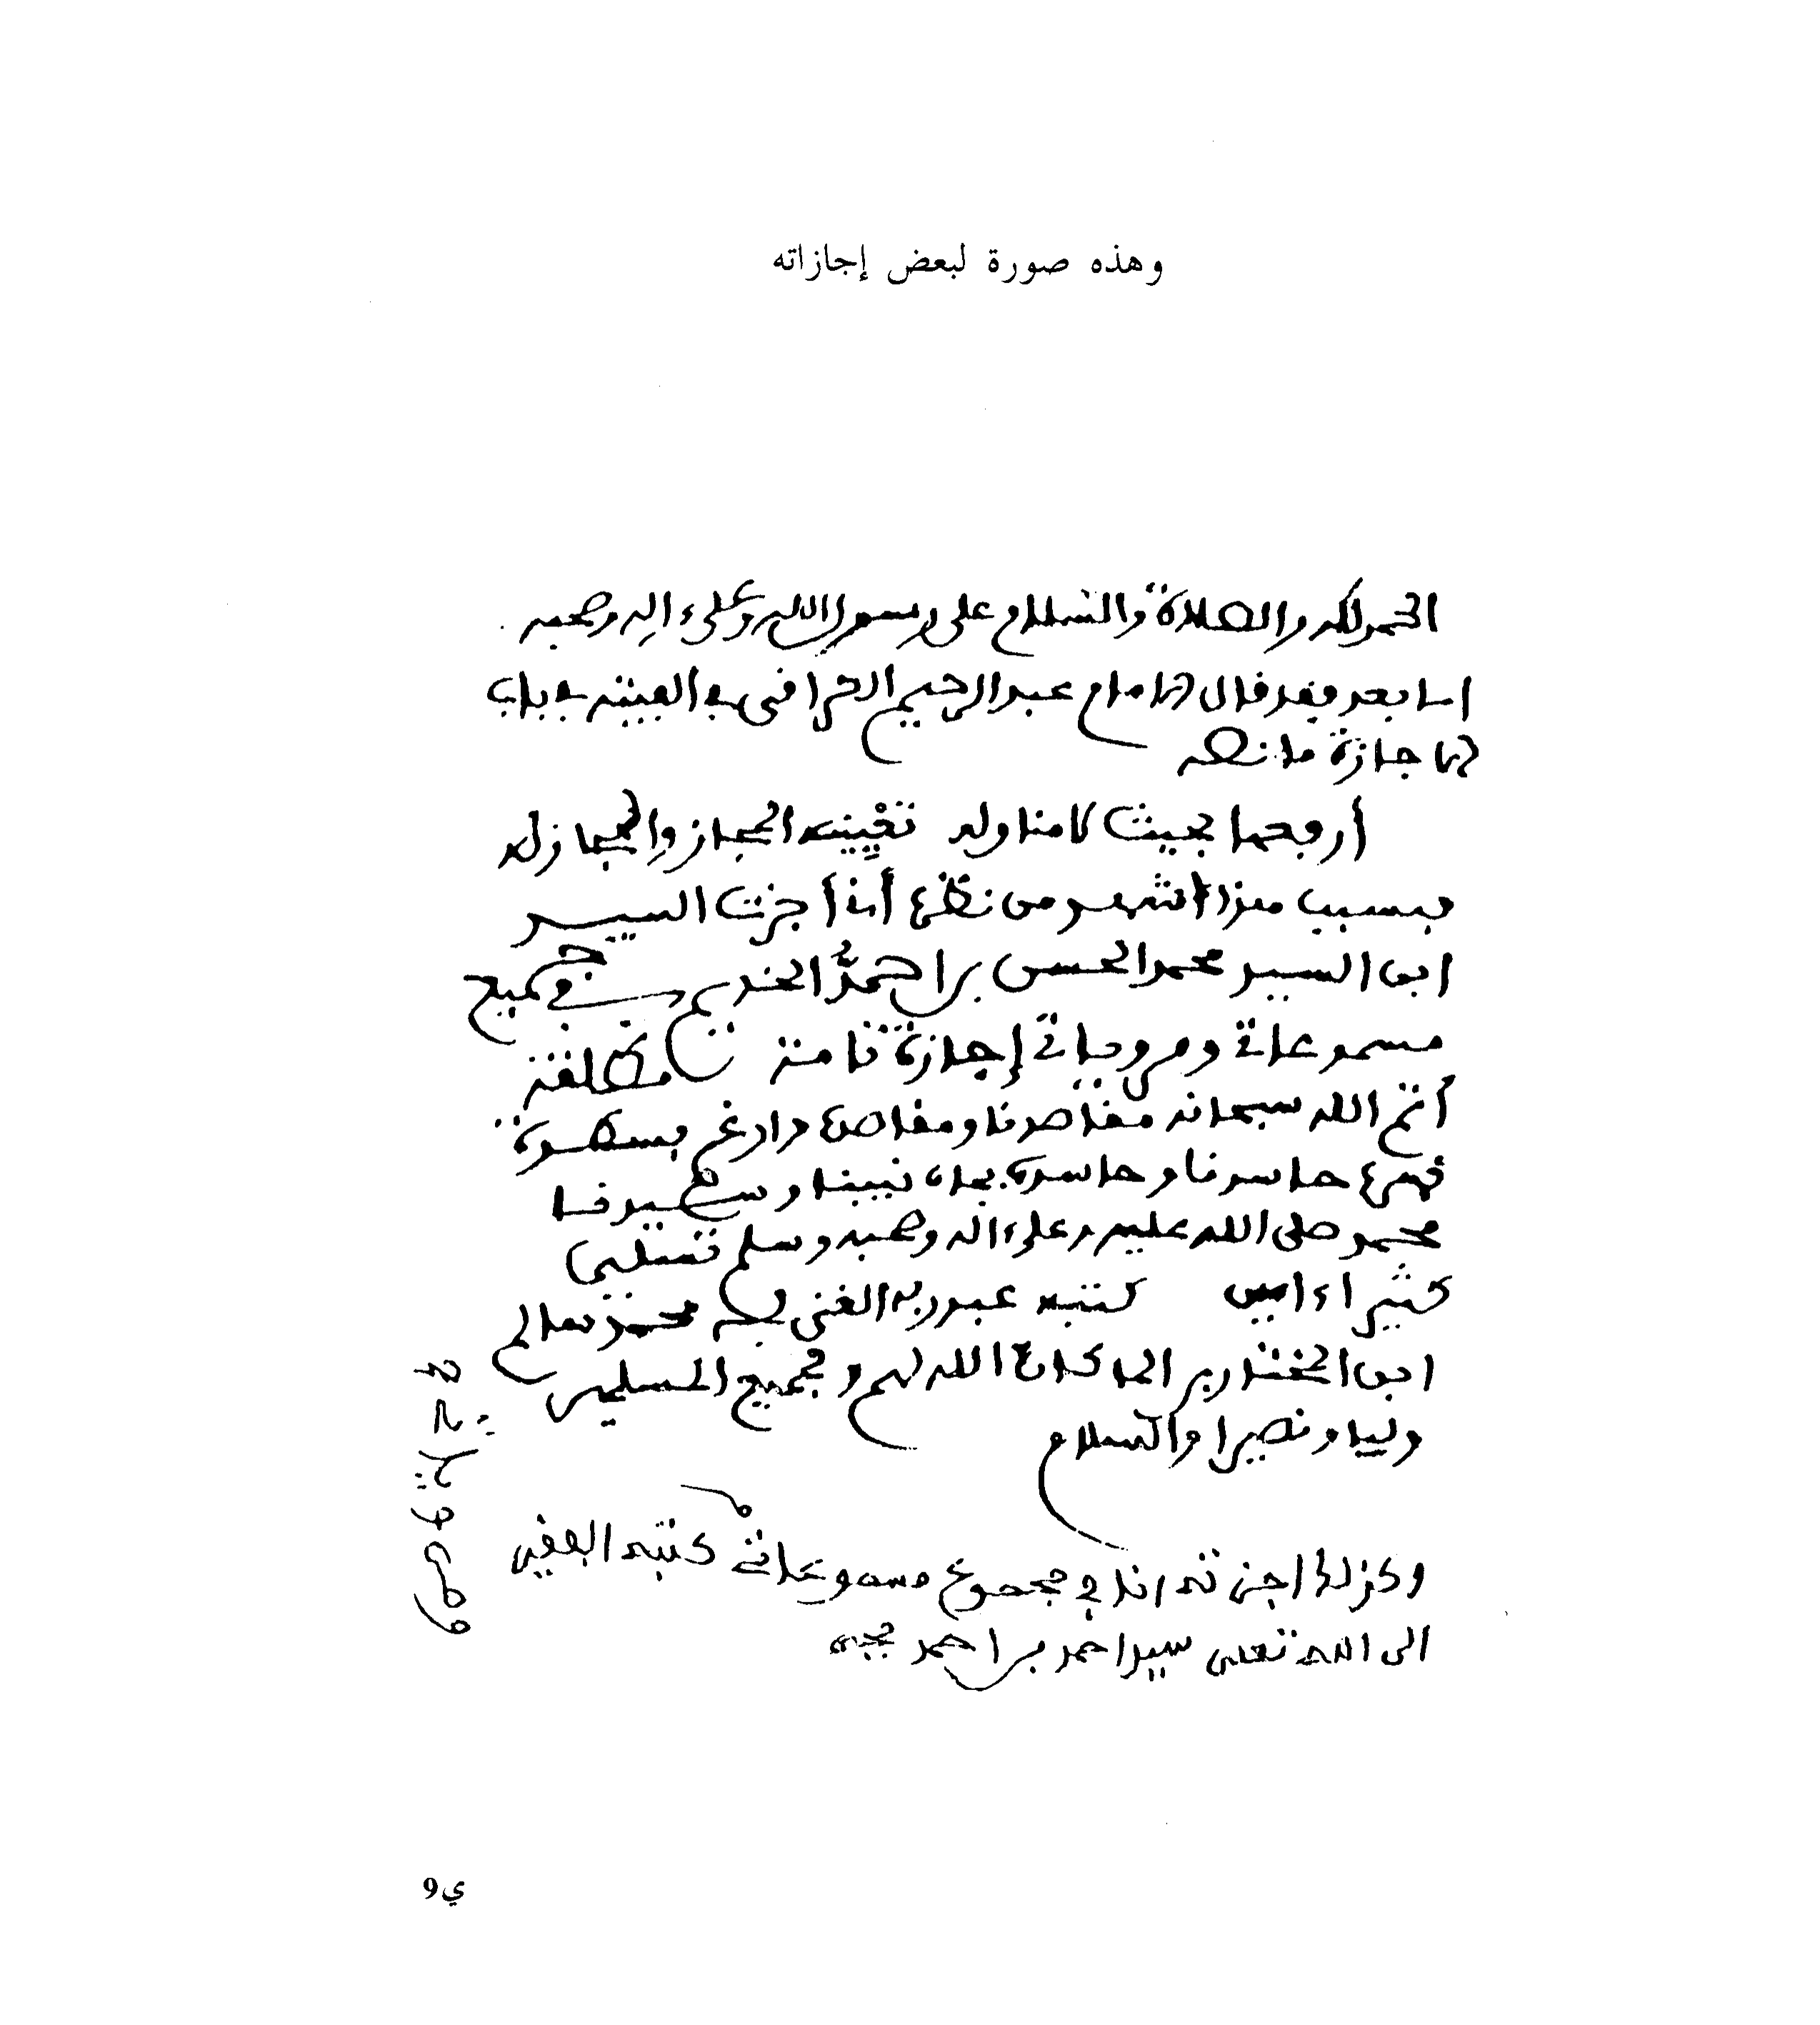 وهذه صورة لبعض إجازاته
الحمد لله والصلاة والسلام على رسول الله وعلى ءاله وصحبه
اما بعد فقد قال الامام عبد الرحيم العراقي في الفيته في باب
الاجازة ما نصه
أرفعها بحيث لا مناوله تعيينه المجاز والمجاز له
فبسبب هذا أشهد من نظره أني أجزت السيد
ابن السيد محمد الحسن بن احمد الخديم في جميع
مسموعاتي ومروياتي إجازة تامة مطلقة
أتم الله سبحانه مقاصدنا ومقاصده وارغم بسطوة
قهره حاسدنا وحاسده بجاه نبينا وسيدنا
محمد صلى الله عليه وعلى ءاله وصحبه وسلم تسليما
كثيرا ءامين كتبه عبد ربه الغني به محمد سالم
ابن المختار بن الما كان الله لهم ولجميع المسلمين
وليا ونصيرا والسلام
وكذلك اجزته انا في مجموع مسموعاتي كتبه الفقير
الى الله تعلى سيد احمد بن احمد يحيى
ي9